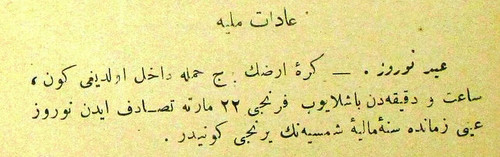 عادات ملیه
عید نوروز . — كرۀ ارضك برج حمله داخل اولدیغی كون ،
ساعت و دقیقه‌دن باشلایوب فرنجی ٢٢ مارته تصادف ایدن نوروز
عینی زمانده سنۀ مالیۀ شمسیه‌نك برنجی كونیدر .